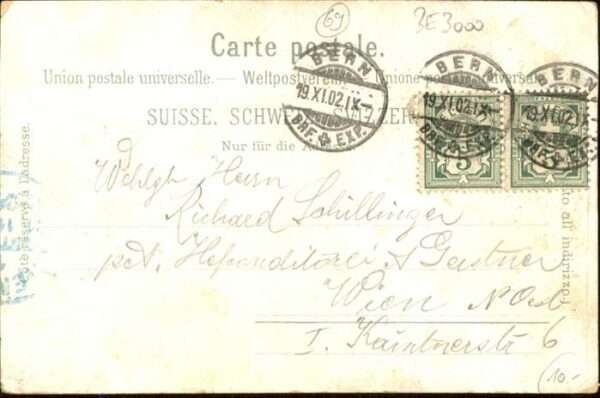 69
3E3000
Carte postale.
Union postale universelle. — Weltpostverein. — Unione postale universale
SUISSE. SCHWEIZ. SVIZZERA.
Nur für die Adresse
BERN
19.XI.02.IX–
BRF. EXP.
BERN
19.XI.02.IX
BRF. EXP.
BERN
19.XI.02.I
BRF. EXP.
5
5
Côté réservé à l'adresse.
Wohlgb. Herrn
Richard Schillinger
Gerstner
Wien
I. Kärntnerstr 6
10.-